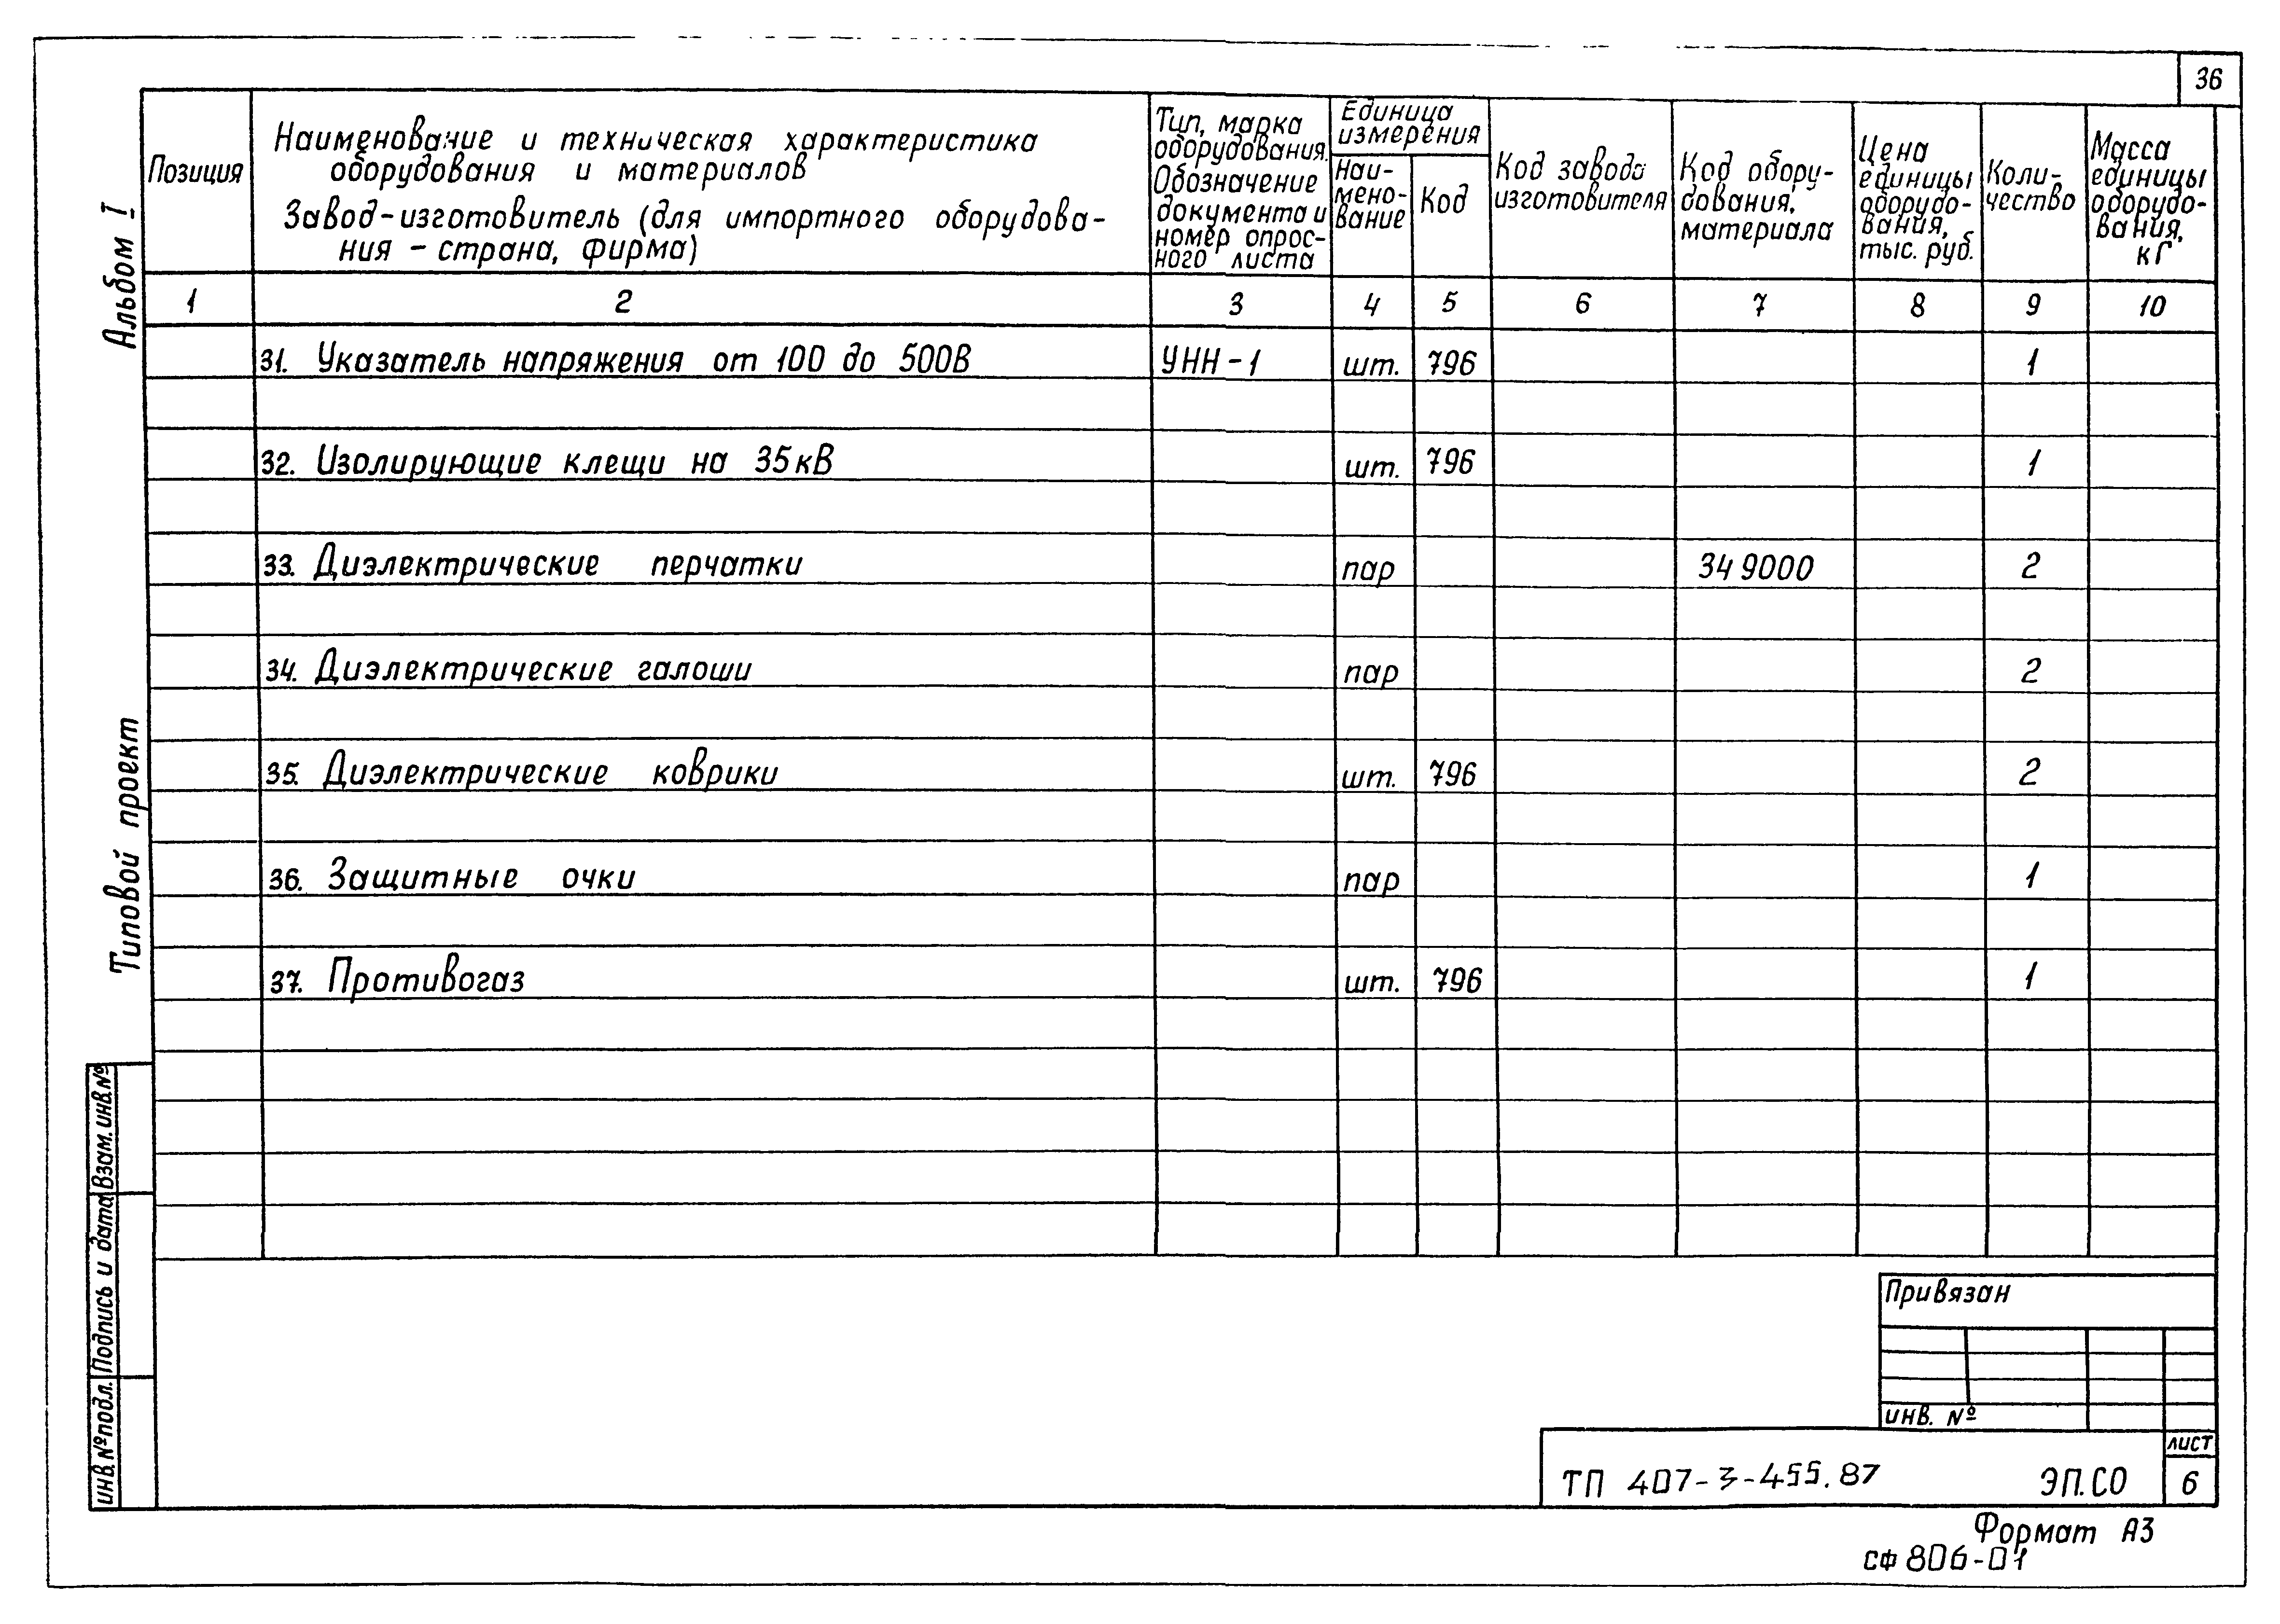 36
Позиция
Наименование и техническая характеристика
оборудования и материалов
Завод-изготовитель (для импортного оборудова-
ния - страна, фирма)
Тип, марка
оборудования.
Обозначение
документа и
номер опрос-
ного листа
Единица
измерения
Наи-
мено-
вание
Код
Код завода
изготовителя
Код обору-
дования,
материала
Цена
единицы
оборудо-
вания,
тыс. руб.
Коли-
чество
Масса
единицы
оборудо-
вания,
кг
1 2 3 4 5 6 7 8 9 10
31. Указатель напряжения от 100 до 500В УНН-1 шт. 796 1
32. Изолирующие клещи на 35кВ шт. 796 1
33. Диэлектрические перчатки пар 349000 2
34. Диэлектрические галоши пар 2
35. Диэлектрические коврики шт. 796 2
36. Защитные очки пар 1
37. Противогаз шт. 796 1
Альбом I
Типовой проект
Взам. инв. №
Подпись и дата
инв. № подл.
Привязан
инв. №
ТП 407-3-455.87 ЭП.СО
лист
6
Формат А3
СФ 806-01